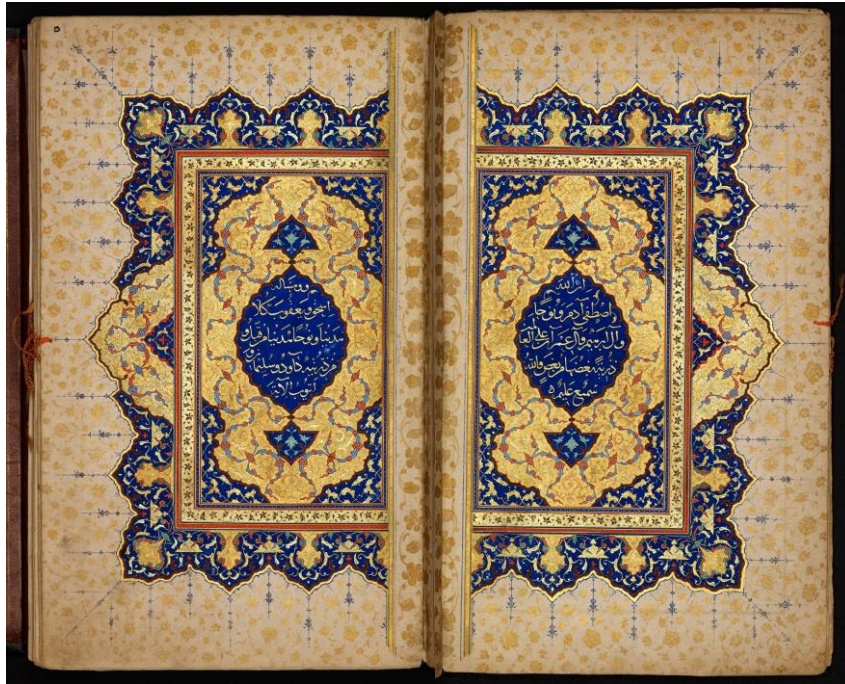 ان الله
اصطفى آدم ونوحا
وآل ابرهيم وآل عمران على العا
ذرية بعضها من بعض والله
سميع عليم
ووهبنا له
اسحق ويعقوب كلا
هدينا ونوحا هدينا من قبل و
من ذريته داود وسليمان و
ايوب الآية